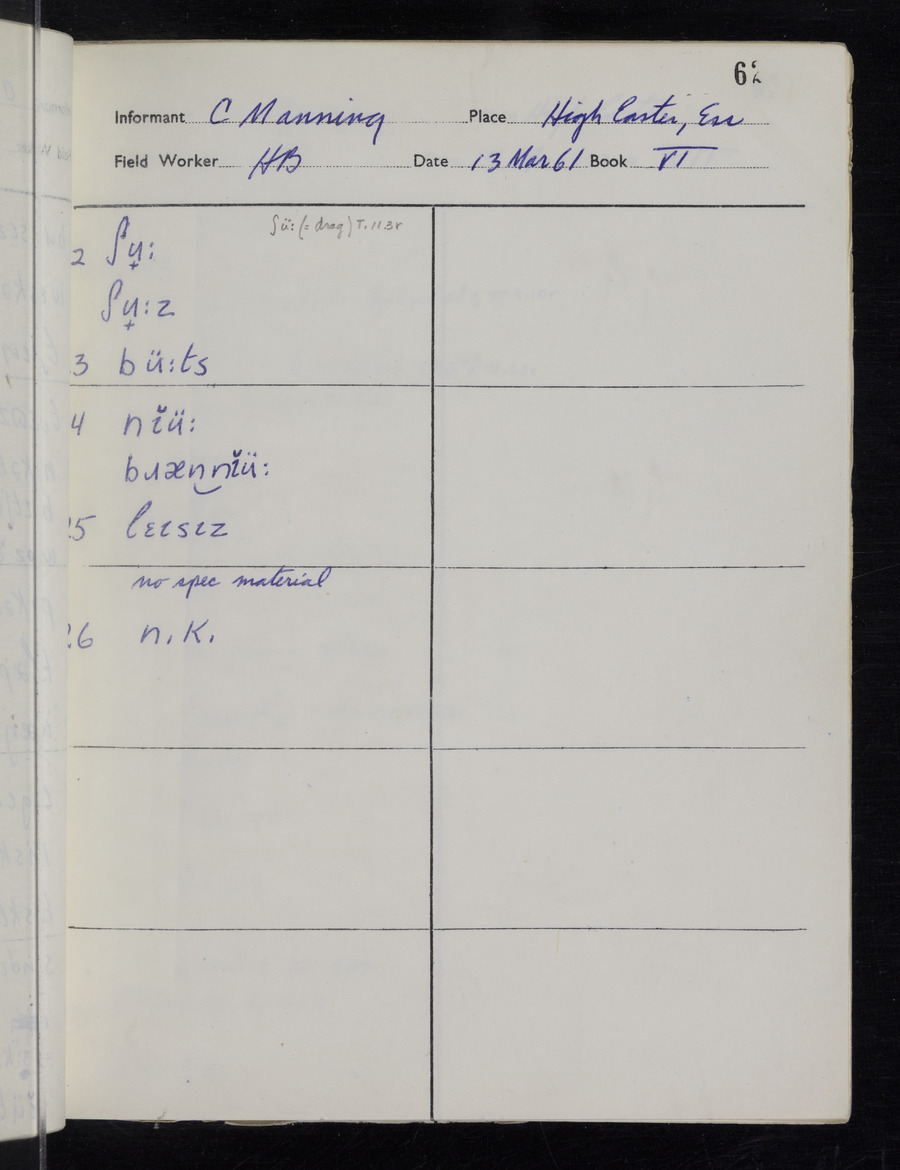 62
Informant C Manning Place High Easter, Ess
Field Worker HB Date 13 Mar 61 Book VI
ʃü: (= drag) T. 11.3r
2 ʃy̟:
ʃy̟:z
3 bü:ts
4 nɪ̆ü:
bɹæn‿nɪ̆ü:
25 lɛɪsɪz
no spec material
26 n.k.